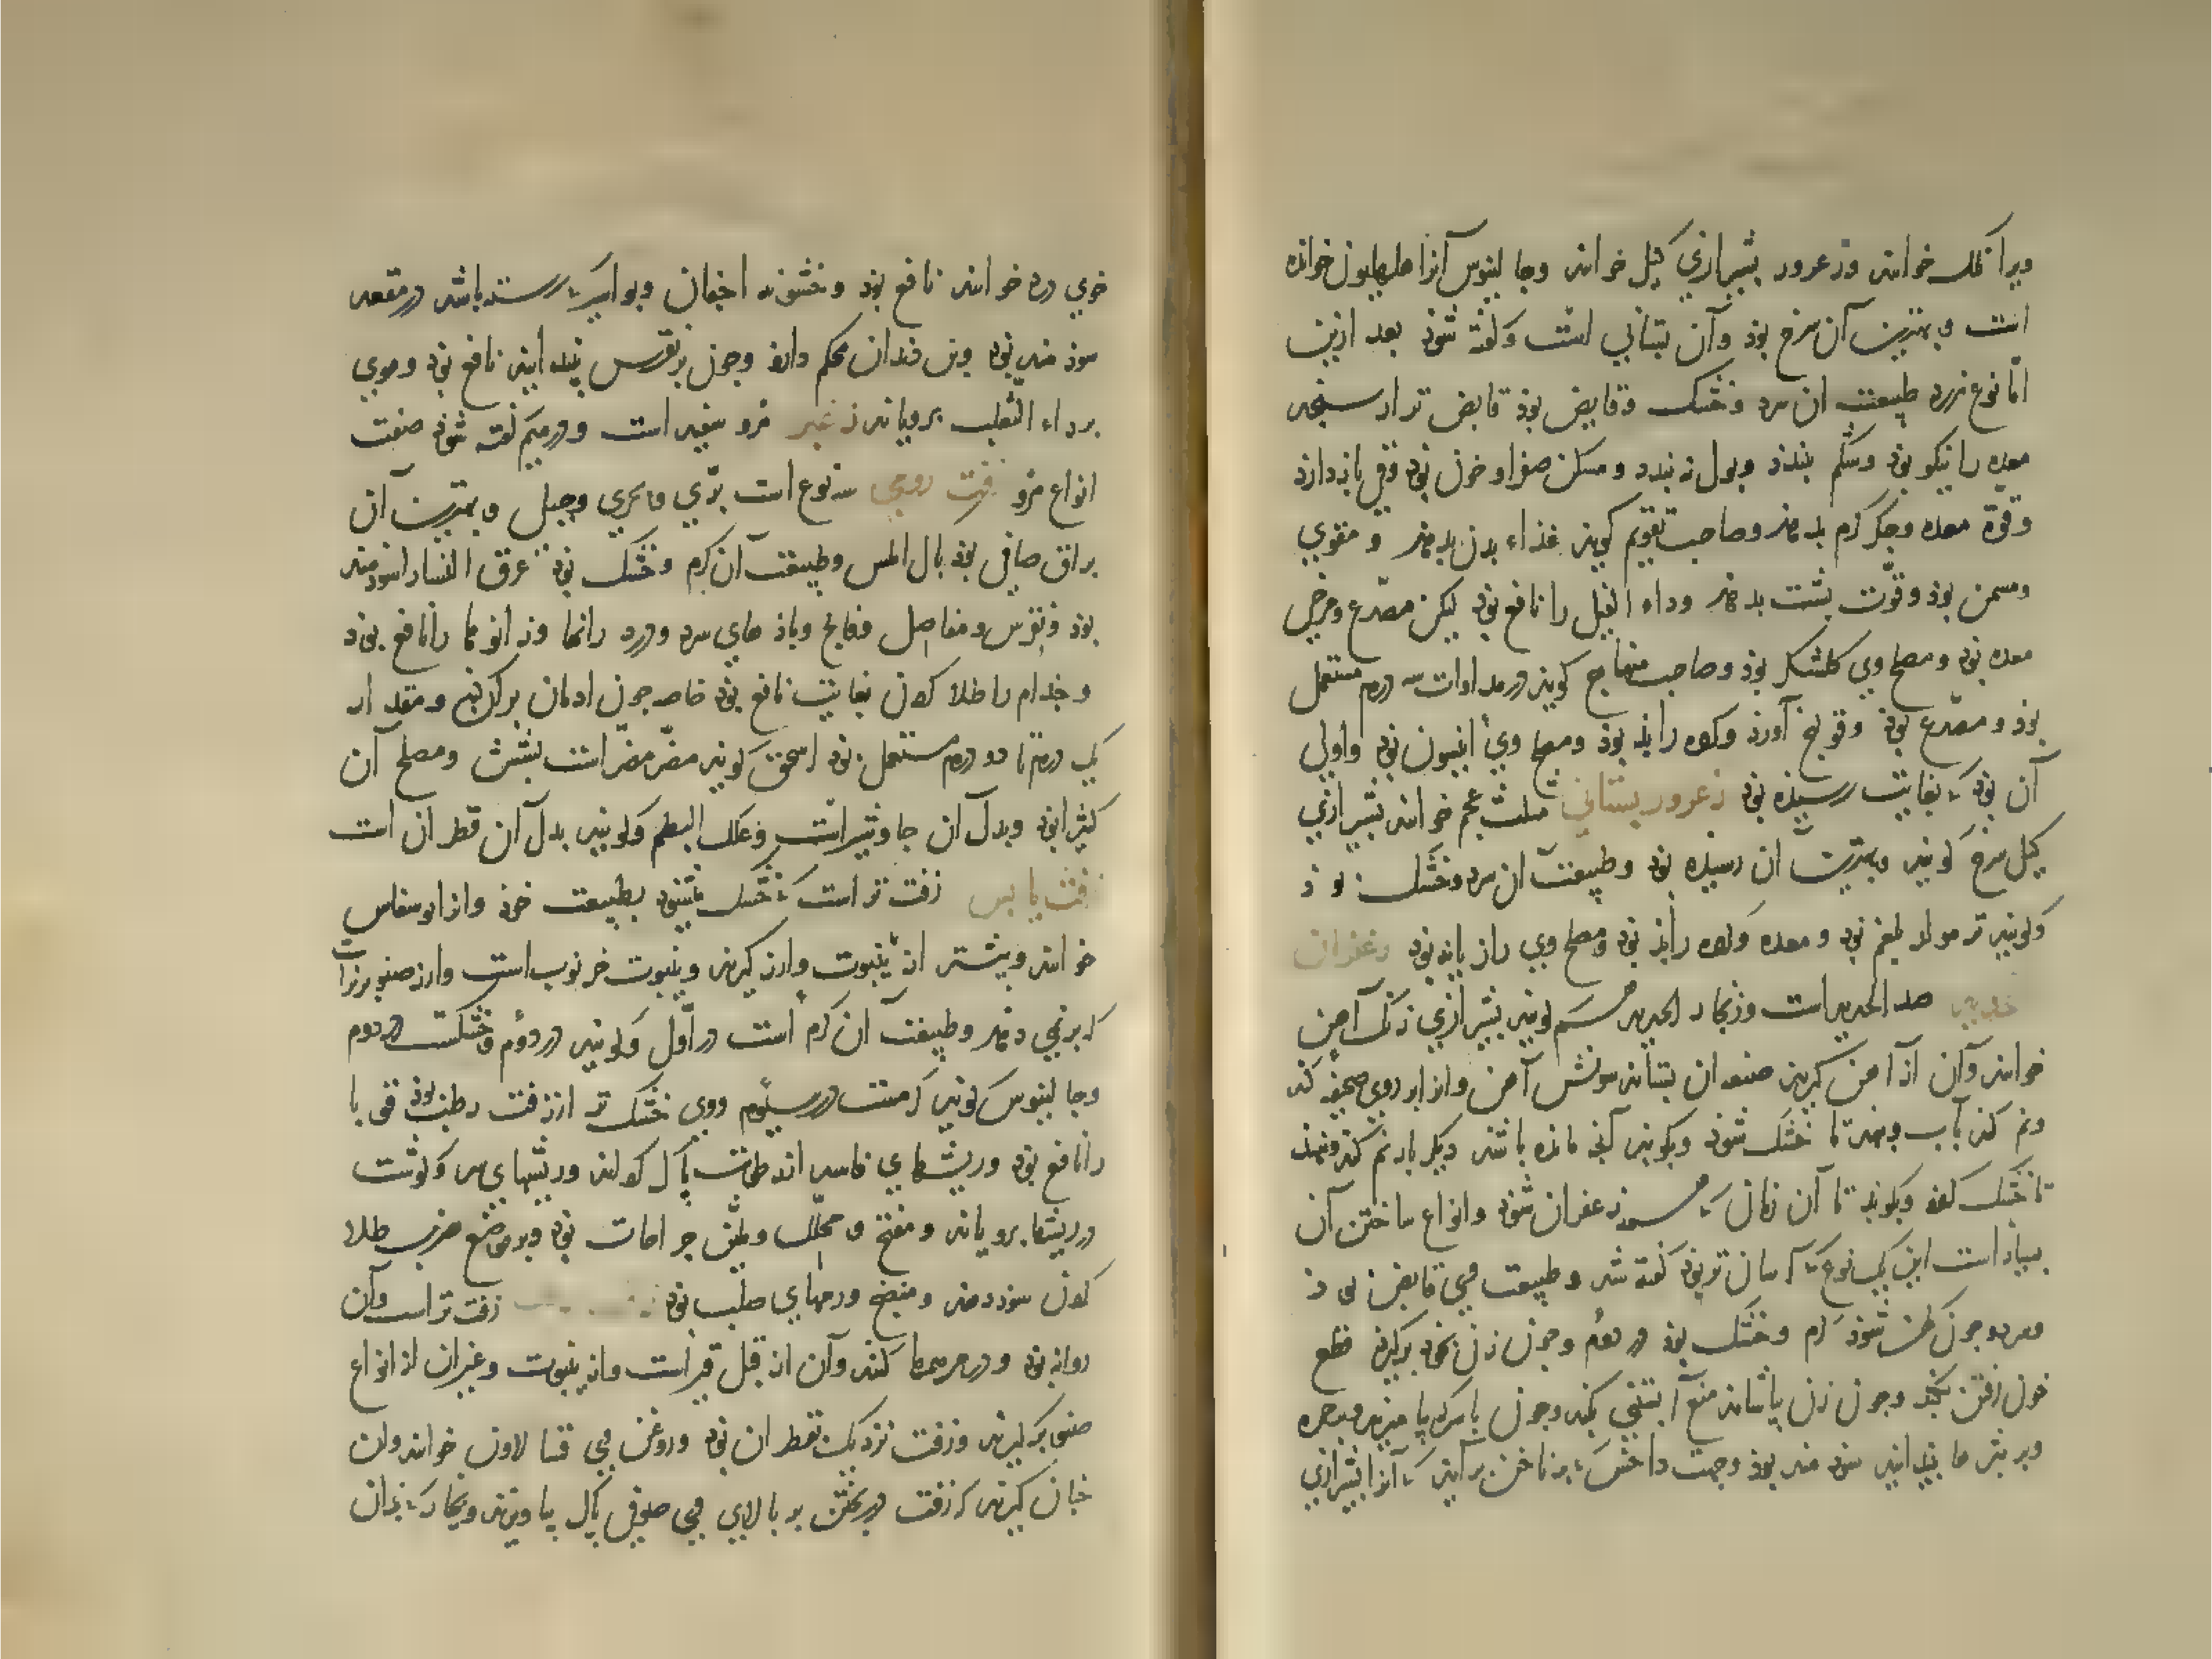 ویرا کلک خوانند وزعرور بشیرازی کیل خوانند وجالینوس آنرا خوانده
است و بهترین آن سرخ بود وآن بستانی است وکفته شود بعد ازین
اما نوع زرد طبیعت ان سرد وخشک وقابض بود قابض تر از سنجد
معده را نیکو بود وشکم ببندد وبول نبندد ومسکن صفرا وخون بود وقی بازدارد
وقوة معده وجکر کرم بدهد وصاحب تقویم کوید غذاء بدن بدهد و مقوی
ومسمن بود وقوّت پشت بدهد وداء الفیل را نافع بود لیکن مصدع ومرخی
معده بود ومصلح وی کلشکر بود وصاحب منهاج کوید در مداوات سه درم مستعمل
بود ومصدع بود وقولنج آورد وکرده را بد بود ومصلح وی انیسون بود واولی
آن بود که بغایت رسیده بود زعرور بستانی مثلث عجم خوانند بشیرازی
کیل سرخ کویند وبهترین ان رسیده بود وطبیعت ان سرد وخشک بود
وکویند تر مولد بلغم بود ومعده وکرده را بد بود ومصلح وی رازیانه بود زعفران
حدید صداء الحدیداست وزنجار الحدید هم کویند بشیرازی زنک آهن
خوانند وآن از آهن کیرند صنعه ان بستانند سونش آهن واندر روی صحیفه کند
ونم کند بآب وبنهند تا خشک شود وبکوبند آنچه مانده باشد دیکر بار نم کند وبنهند
تا خشک کردد وبکوبد تا آن زمان که همه زعفران شود وانواع ساختن آن
بسیار است این یک نوع که آسان تر بود کفته شد وطبیعت وی قابض بود
وسرد وجون کهن شود کرم وخشک بود در دوم وجون زن بخود برکیرد قطع
خون رفتن بکند وجون زن بیاشامد منع آبستنی بکند وجون با سرکه بیامیزند
وبر بثرها بیندایند سود مند بود وجهت داخس که بر ناخن برآید که آنرا بشیرازی
خوی درد خوانند نافع بود وخشونه اجفان وبواسیر که رسته باشد در مقعد
سود مند بود وبن دندان محکم دارد وجون بر نقرس بیندایند نافع بود وموی
بر داء الثعلب برویاند زغبر مرو سفید است ودر میم کفته شود صفت
انواع مرو زفت رومی سه نوع است برّی وبحری وجبلی وبهترین آن
براق صافی بود بال املس وطبیعت آن کرم وخشک بود عرق النسا را سودمند
بود ونقرس ومفاصل وفالج وبادهای سرد ودرد رانها وزانوها را نافع بود
وجذام را طلا کردن بغایت نافع بود خاصه جون ادمان برآن کنند ومقدار
یک درم تا دو درم مستعمل بود اسحق کوید مضر مضر است بشش ومصلح آن
کثیرا بود وبدل آن جاوشیر است وعلک البطم وکویند بدل آن قطران است
زفت یابس زفت تر است که خشک بشود بطبیعت خود وانرا بوسقاس
خوانند وبیشتر از ینبوت وارز کیرند وینبوت خرنوب است وارز صنوبرنر است
که بر نمی دهد وطبیعت آن کرم است در اوّل وکویند در دوم وخشکست در دوم
وجالینوس کوید کرمست در سیوم ووی خشک تر از زفت رطب بود قوبا
را نافع بود وریشهای فاسد از رطوبت پاک کرداند وریشهای سر وکوشت
در ریشها برویاند ومفتح ومحلل وملین جراحات بود وبر موضع ضرب طلا
کردن سود دهد ومنضج ورمهای صلب بود زفت تر است وآن
روانه بود ودر مرهمها کنند وآن از قبل قیر است واز ینبوت وغیر آن از انواع
صنوبر کیرند وزفت نزدیک بقطران بود وروغن وی قسالاون خوانند وآن
جنان کیرند که زفت در پختن بر بالای وی صوفی پاک بیاویزند وبخار که بدان